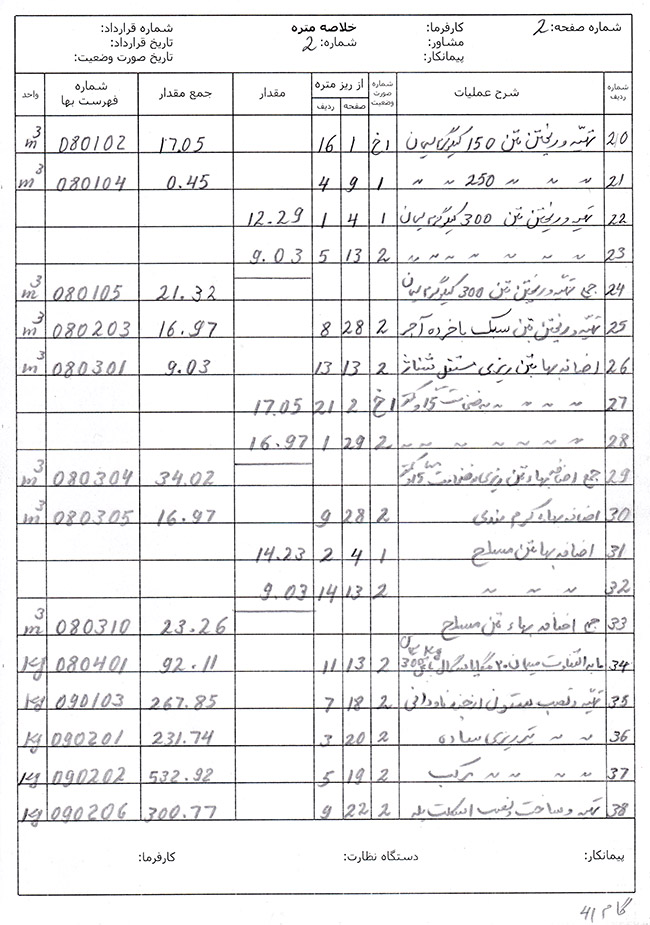 شماره صفحه: 2 کارفرما: خلاصه متره شماره قرارداد:
مشاور: شماره: 2 تاریخ قرارداد:
پیمانکار: تاریخ صورت وضعیت:
شماره ردیف شرح عملیات شماره صورت وضعیت از ریز متره صفحه ردیف مقدار جمع مقدار شماره فهرست بها واحد
20 تهیه و ریختن بتن 150 کیلوگرم سیمان 1خ 1 16 17.05 080102 m3
21 〃 〃 〃 250 〃 〃 1 9 4 0.45 080104 m3
22 تهیه و ریختن بتن 300 کیلوگرم سیمان 1 4 1 12.29
23 〃 〃 〃 〃 〃 〃 2 13 5 9.03
24 جمع تهیه و ریختن بتن 300 کیلوگرم سیمان 21.32 080105 m3
25 تهیه و ریختن بتن سبک با خرده آجر 2 28 8 16.97 080203 m3
26 اضافه بها بتن ریزی مستقل شناژ 2 13 13 9.03 080301 m3
27 〃 〃 〃 〃 ضخامت 15 و کمتر 1خ 2 21 17.05
28 〃 〃 〃 〃 〃 〃 〃 2 29 1 16.97
29 جمع اضافه بهاء بتن ریزی با ضخامت 15 و کمتر 34.02 080304 m3
30 اضافه بهاء کرم بندی 2 28 9 16.97 080305 m3
31 اضافه بها بتن مسلح 1 4 2 14.23
32 〃 〃 〃 2 13 14 9.03
33 جمع اضافه بهاء بتن مسلح 23.26 080310 m3
34 مابه التفاوت سیمان 300 kg 2 13 11 92.11 080401 kg
35 تهیه و نصب ستون از چند ناودانی 2 18 7 267.85 090103 kg
36 〃 〃 تیرریزی ساده 2 20 3 231.74 090201 kg
37 〃 〃 〃 مرکب 2 19 5 532.92 090202 kg
38 تهیه و ساخت و نصب اسکلت پله 2 22 9 300.77 090206 kg
پیمانکار: دستگاه نظارت: کارفرما:
گام 41